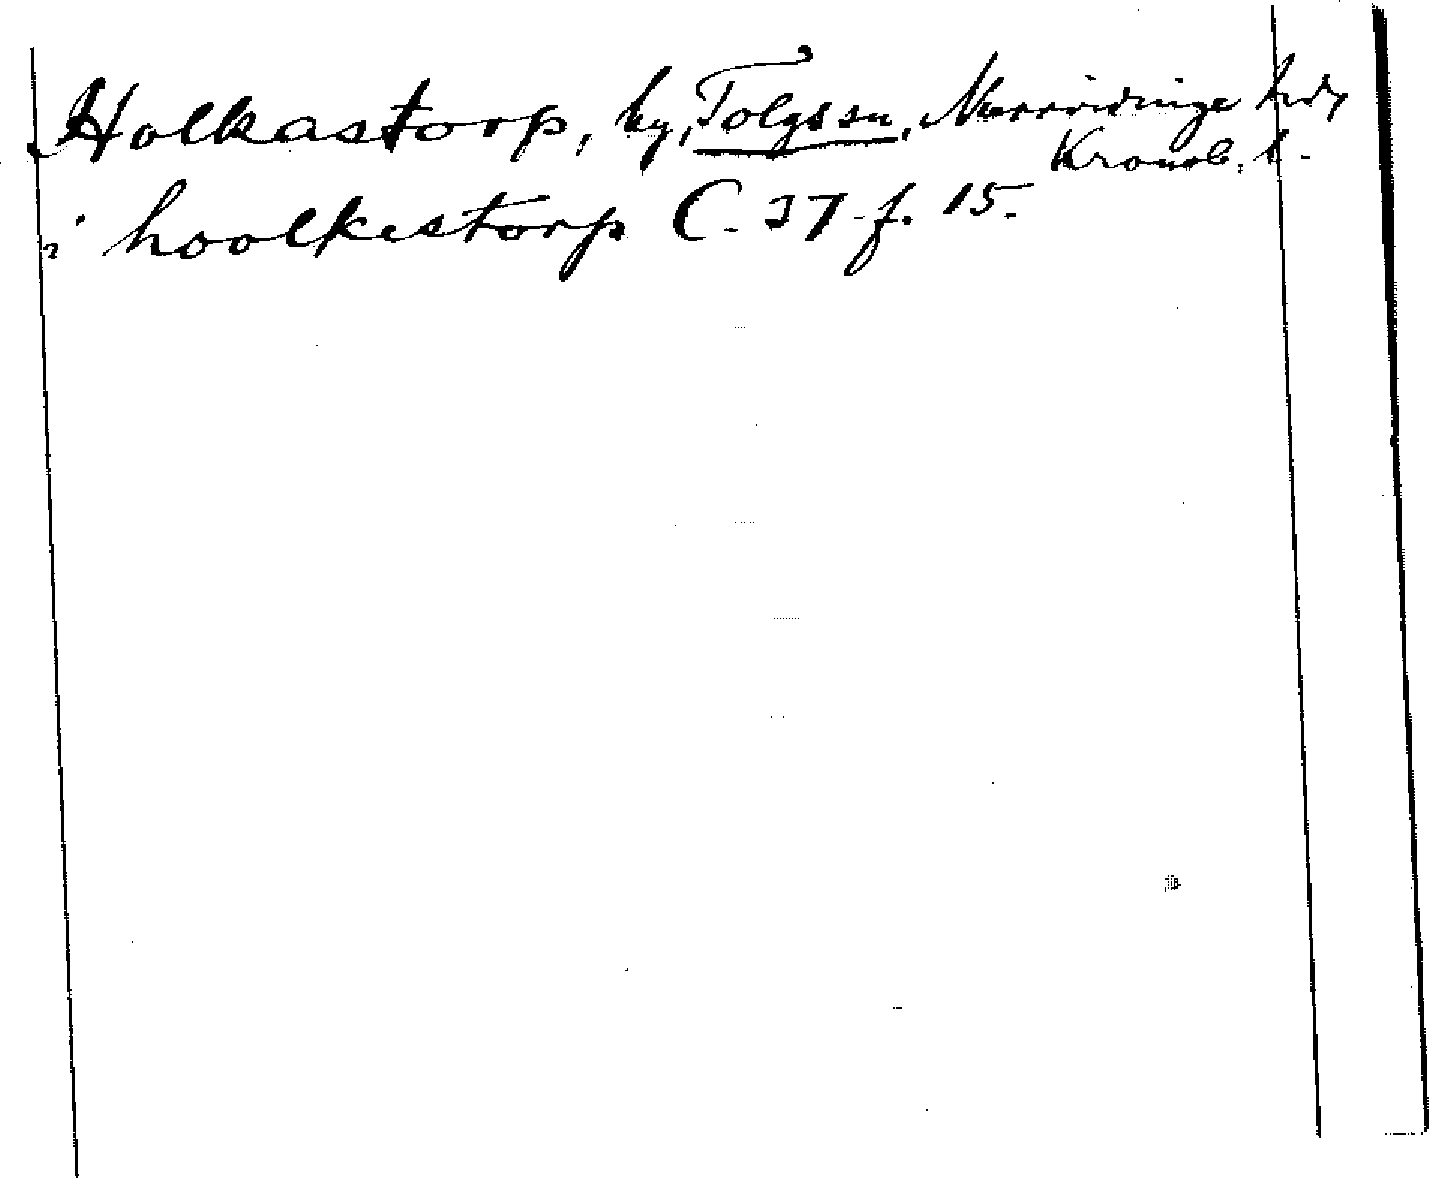 Holkastorp, by, Tolgs sn, Norrvidinge hd,
Kronob. l.
i hoolkestorp C. 37 f. 15.